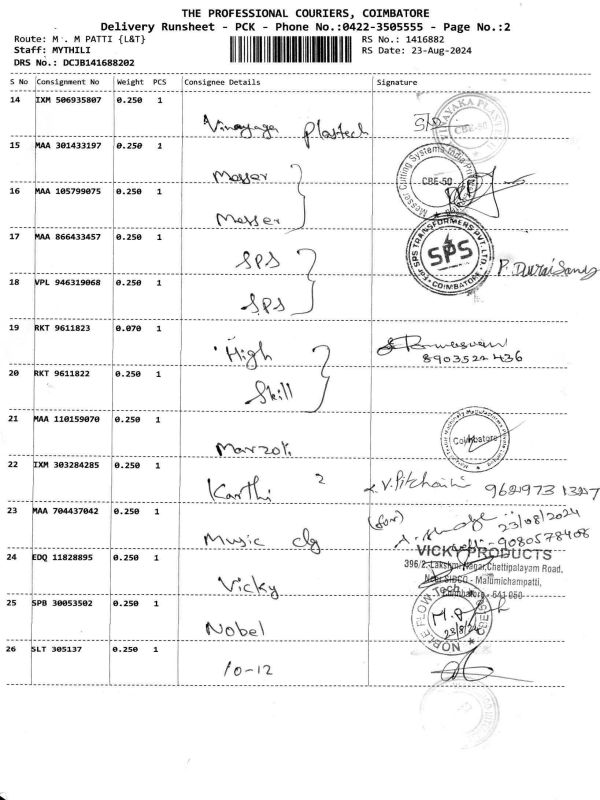 THE PROFESSIONAL COURIERS, COIMBATORE
Delivery Runsheet - PCK - Phone No.:0422-3505555 - Page No.:2
Route: M . M PATTI {L&T}
RS No.: 1416882
Staff: MYTHILI
RS Date: 23-Aug-2024
DRS No.: DCJB141688202
S No Consignment No Weight PCS Consignee Details Signature
14 IXM 506935807 0.250 1
Vinayaga Plastech
CBE-50
15 MAA 301433197 0.250 1
Messer
Messer Cutting Systems India
CBE-50
16 MAA 105799075 0.250 1
Messer
17 MAA 866433457 0.250 1
SPS
For SPS TRANSFORMERS PVT. LTD.
SPS
COIMBATORE
P. Durai Samy
18 VPL 946319068 0.250 1
SPS
19 RKT 9611823 0.070 1
High
8903522436
20 RKT 9611822 0.250 1
Skill
21 MAA 110159070 0.250 1
Marzoli
Coimbatore
22 IXM 303284285 0.250 1
Karthi 2
V. Pitchai 9629731327
23 MAA 704437042 0.250 1
Music clg
23/08/2024
9080578408
24 EDQ 11828895 0.250 1
Vicky
VICKY PRODUCTS
396/2, Lakshmi Nagar, Chettipalayam Road,
Near SIDCO - Malumichampatti,
Coimbatore - 641 050
25 SPB 30053502 0.250 1
Nobel
NOBLE FLOW Tech
23/8/24
26 SLT 305137 0.250 1
10-12